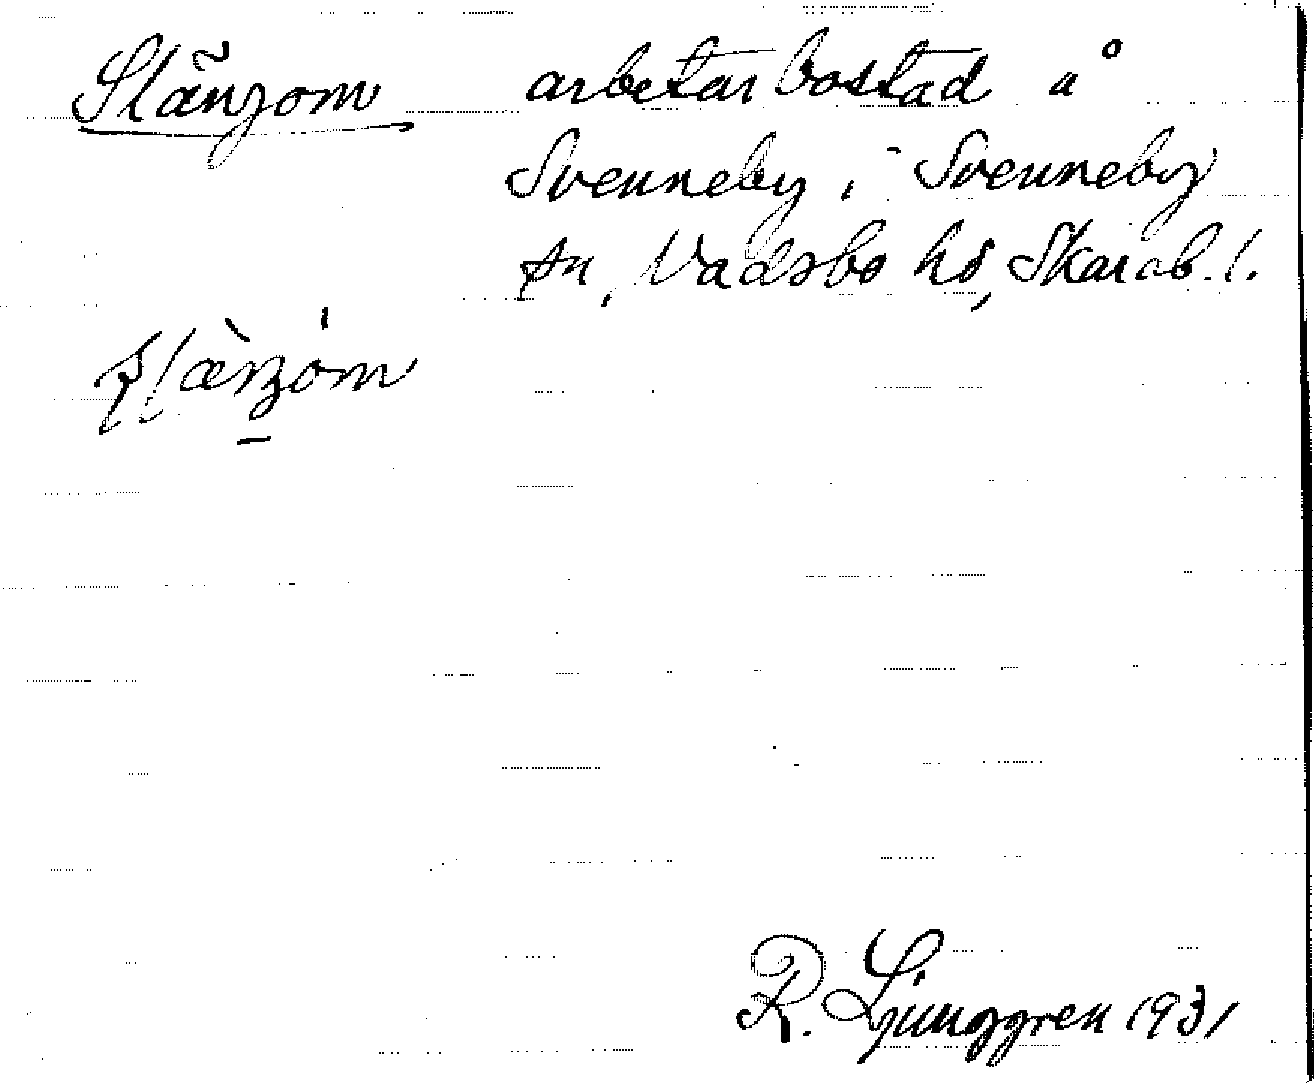 Slängom arbetarbostad å
Svenneby i Svenneby
sn, Vadsbo hd, Skarab. l.
R. Ljunggren 1931